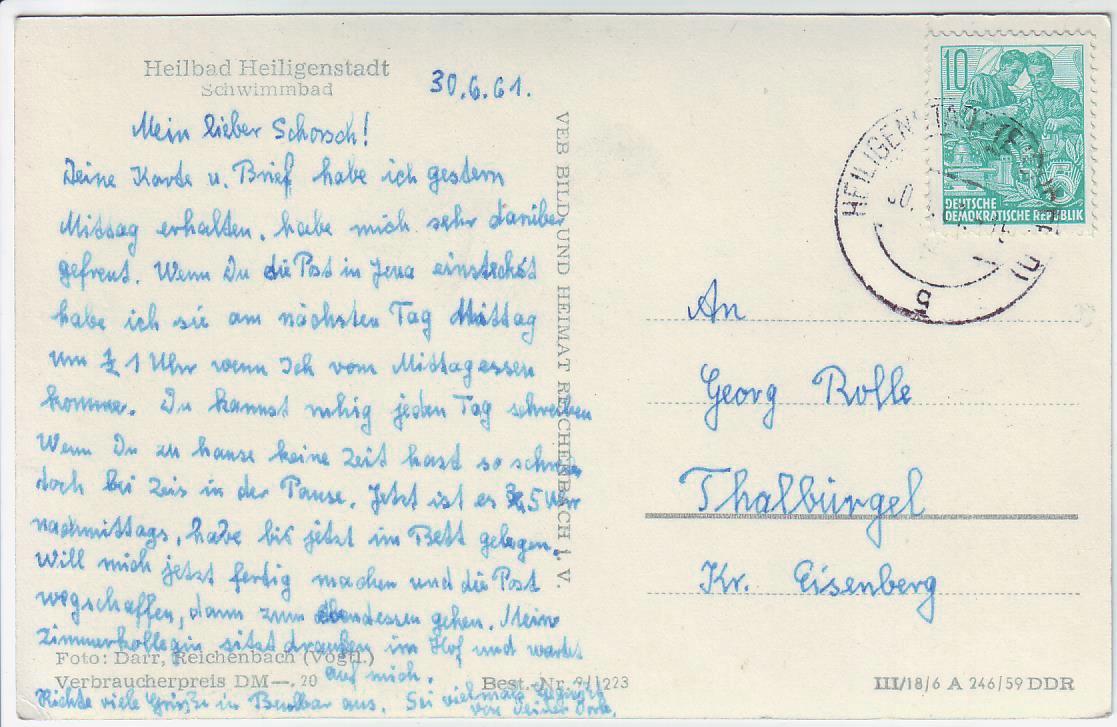 Heilbad Heiligenstadt
Schwimmbad
30.6.61.
Mein lieber Schorsch!
Deine Karte u. Brief habe ich gestern
Mittag erhalten, habe mich sehr darüber
gefreut. Wenn Du die Post in Jena einsteckst
habe ich sie am nächsten Tag Mittag
um ½ 1 Uhr wenn Ich vom Mittagessen
komme. Du kannst ruhig jeden Tag schreiben
Wenn Du zu hause keine Zeit hast so schreibe
doch bei Zeis in der Pause. Jetzt ist es ¾ 5 Uhr
nachmittags, habe bis jetzt im Bett gelegen.
Will mich jetzt fertig machen und die Post
wegschaffen, dann zum Abendessen gehen. Meine
Zimmerkollegin sitzt draußen im Hof und wartet
auf mich.
Richte viele Grüße in aus. Sei vielmals gegrüßt
von Deiner
Foto: Darr, Reichenbach (Vogtl.)
Verbraucherpreis DM —.20
Best.-Nr. 9/1223
VEB BILD UND HEIMAT REICHENBACH I. V.
10
DEUTSCHE
DEMOKRATISCHE REPUBLIK
HEILIGENSTADT
a
An
Georg Rolle
Thalbürgel
Kr. Eisenberg
III/18/6 A 246/59 DDR